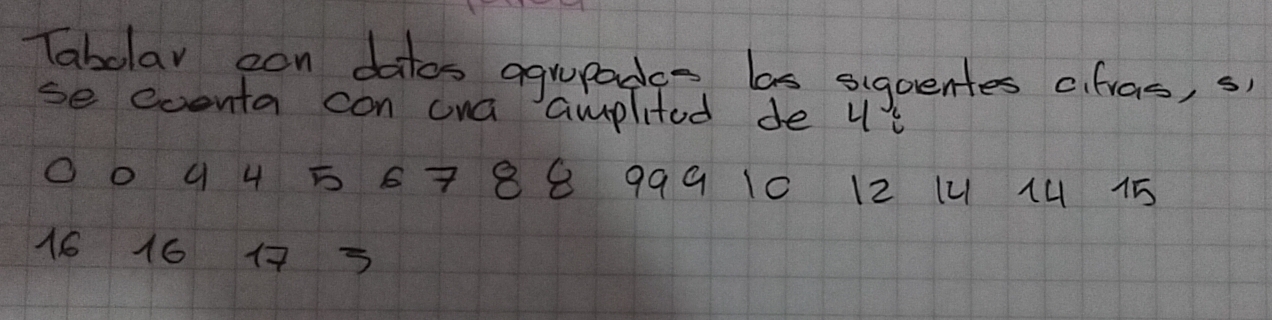 Tabular con datos agrupados las siguientes cifras, si
se cuenta con una amplitud de 4:
0 0 4 4 5 6 7 8 8 9 9 9 10 12 14 14 15
16 16 17 3